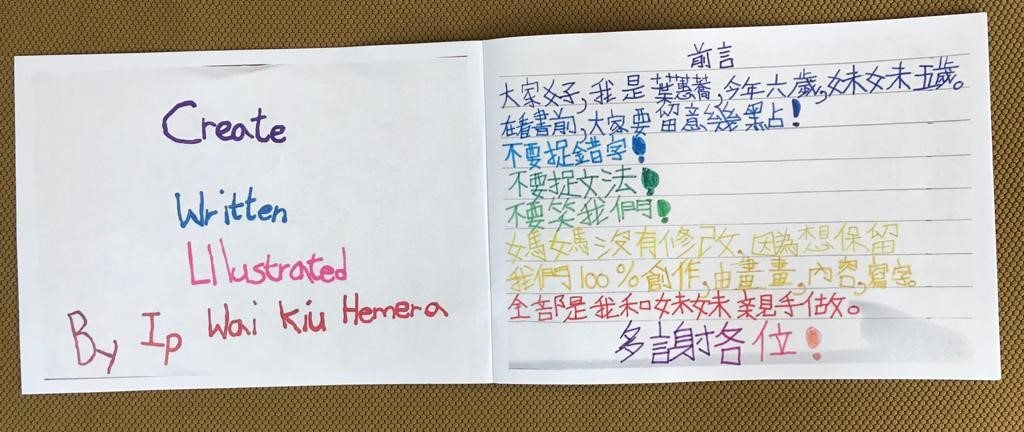 Create
Written
Lllustrated
By Ip Wai Kiu Hemera
前言
大家好,我是葉蕙蕎,今年六歲,妹妹五歲。
在看書前,大家要留意幾點!
不要捉錯字!
不要捉文法!
不要笑我們!
媽媽沒有修改,因為想保留
我們100%創作,由畫畫,內容,寫字。
全部是我和妹妹親手做。
多謝各位!